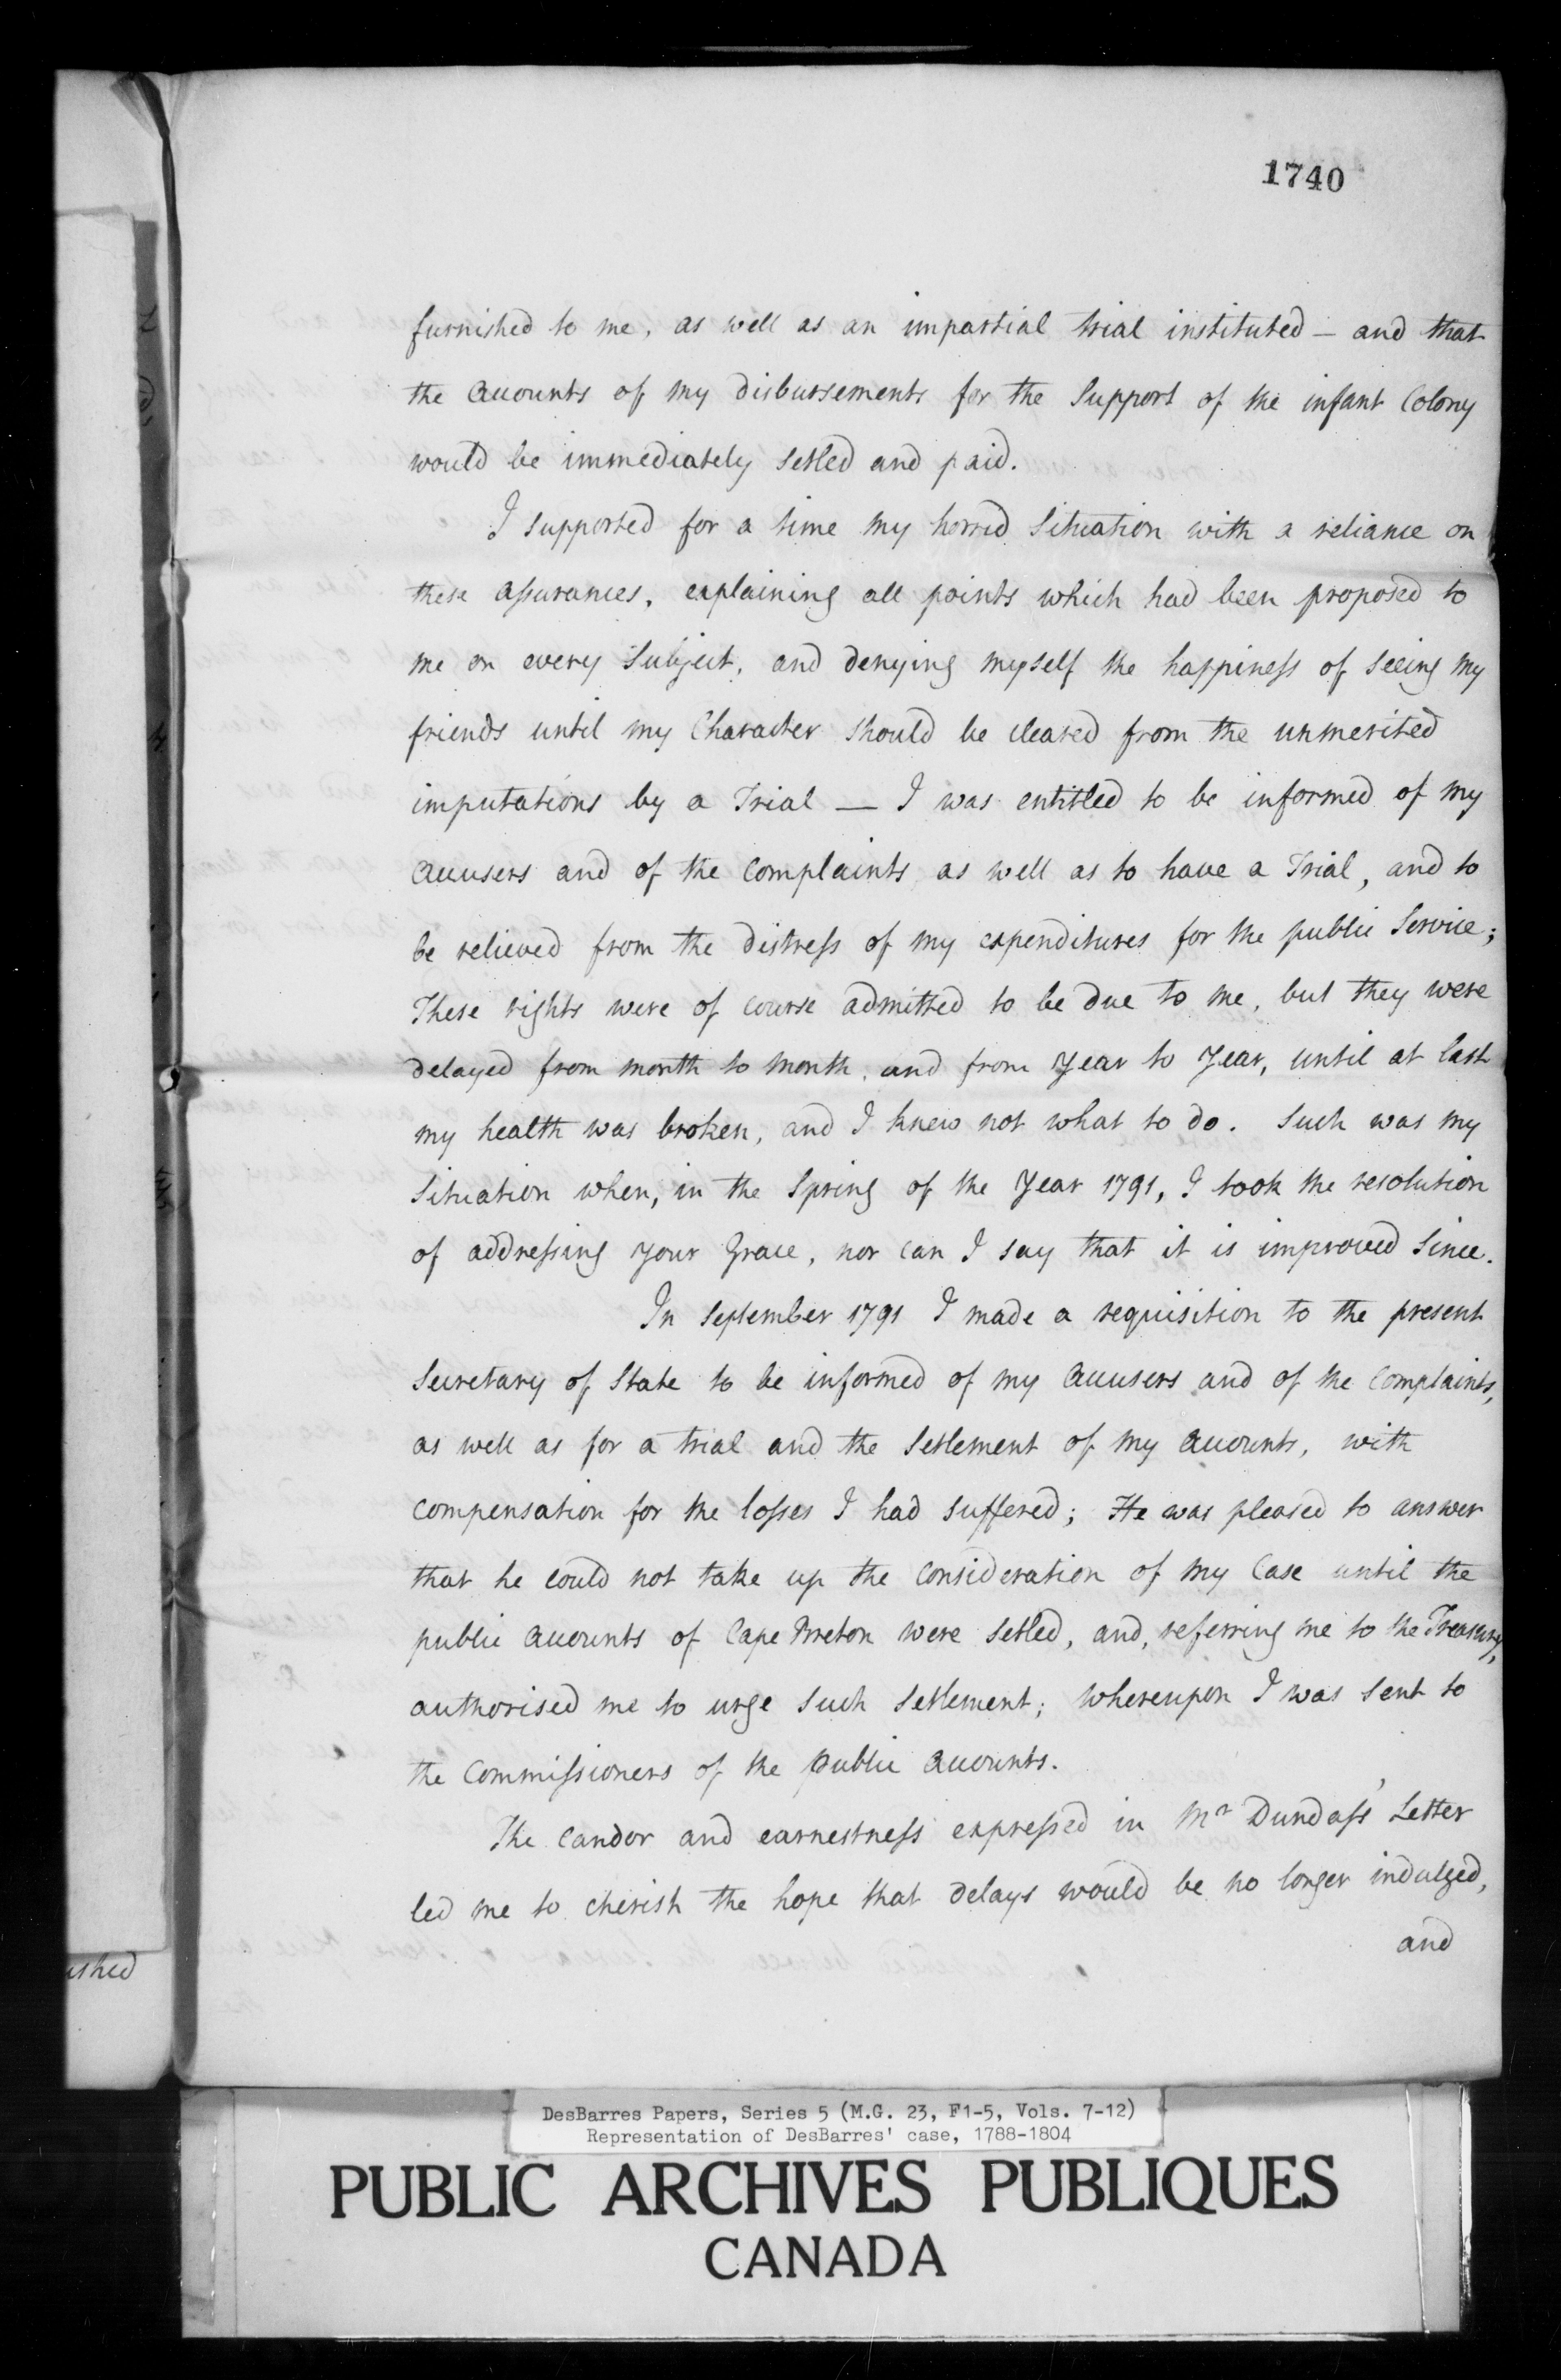 1740
furnished to me, as well as an impartial trial instituted — and that
the accounts of my disbursements for the Support of the infant Colony
would be immediately setled and paid.
I supported for a time my horrid Situation with a reliance on
these assurances, explaining all points which had been proposed to
me on every Subject, and denying myself the happiness of seeing my
friends until my Character should be cleared from the unmerited
imputations by a Trial — I was entitled to be informed of my
accusers and of the Complaints as well as to have a Trial, and to
be relieved from the distress of my expenditures for the public Service;
These rights were of course admitted to be due to me, but they were
delayed from month to month, and from Year to Year, until at last
my health was broken, and I knew not what to do. Such was my
Situation when, in the Spring of the Year 1791, I took the resolution
of addressing your Grace, nor can I say that it is improved Since.
In September 1791 I made a requisition to the present
Secretary of State to be informed of my accusers and of the Complaints,
as well as for a trial and the Setlement of my accounts, with
Compensation for the losses I had suffered; He was pleased to answer
that he could not take up the Consideration of my Case until the
public accounts of Cape Breton were Setled, and, referring me to the Treasury,
authorised me to urge such Setlement; whereupon I was sent to
the Commissioners of the public accounts.
The Candor and earnestness expressed in Mr Dundass' Letter
led me to cherish the hope that delays would be no longer indulged,
and
ished
DesBarres Papers, Series 5 (M.G. 23, F1-5, Vols. 7-12)
Representation of DesBarres' case, 1788-1804
PUBLIC ARCHIVES PUBLIQUES
CANADA